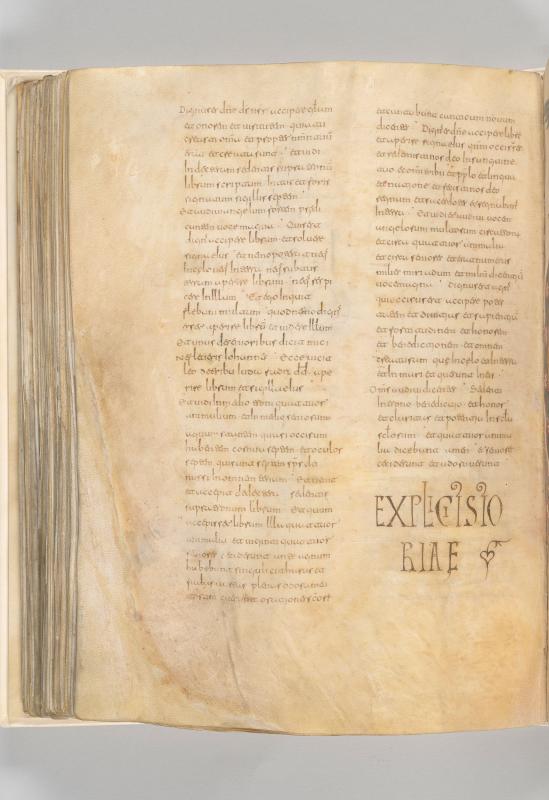 Dignus es dne ds nsr accipere glam
et onorem et uirtutem quia tu
creasti omnia et propter
erant et creata sunt et uidi
In dexteram sedentis supra tronum
librum scriptum Intus et foris
signatum sigillis septem
Et uidi angelum fortem predi
cantem uoce magna Quis est
dign accipere librum et soluere
signa eius et nemo poterat neq
In celo neq In terra neq subtus
terram aperire librum neq respi
cere Illum Et ego
flebam multum quod nemo dign
esset aperire libru et uidere Illum
Et unus de senioribus dicit mici
ne fleueris Iohannes Ecce uicit
leo de tribu Iuda radix dd ape
rire librum et sigilla eius
Et uidi In medio troni quatuor
animalium et In medio seniorum
agnum stantem quasi occisum
habentem cornua septem et oculos
septem qui sunt septem sps di
missi In omnem terram Et uenit
et accepit de dextera sedentis
supra tronum librum Et quum
accepisset librum Illa quatuor
animalia et uiginti quatuor
seniores ceciderunt ante agnum
habebant singuli citharas et
fialas aureas plenas odoramen
torum que sunt orationes scor
et cantabant canticum nouum
dicentes Dignus es dne accipere libru
et aperire signa eius qnm occisus es
et redemisti nos deo In sanguine
tuo ex omni tribu et pplo et lingua
et natione et fecisti nos deo
regnum et sacerdotes et regnabunt
In terra Et uidi et audiui uocem
angelorum multorum circa tronu
et circa quatuor animalia
et circa seniores et erat numerus
milies miriadum et milia dicentiu
uoce magna Dignus est agns
qui occisus est accipere potes
tatem et diuitias et sapientia
et fortitudinem et honorem
et benedictionem et omnem
creaturam que In celo et In terra
et In mari et que sunt In eis
Oms audiui dicentes Sedenti
In trono benedictio et honor
et claritas et potestas In scla
sclorum et quatuor anima
lia dicebant amen et seniores
ceciderunt et adorauerunt
EXPLICIT STO
RIAE